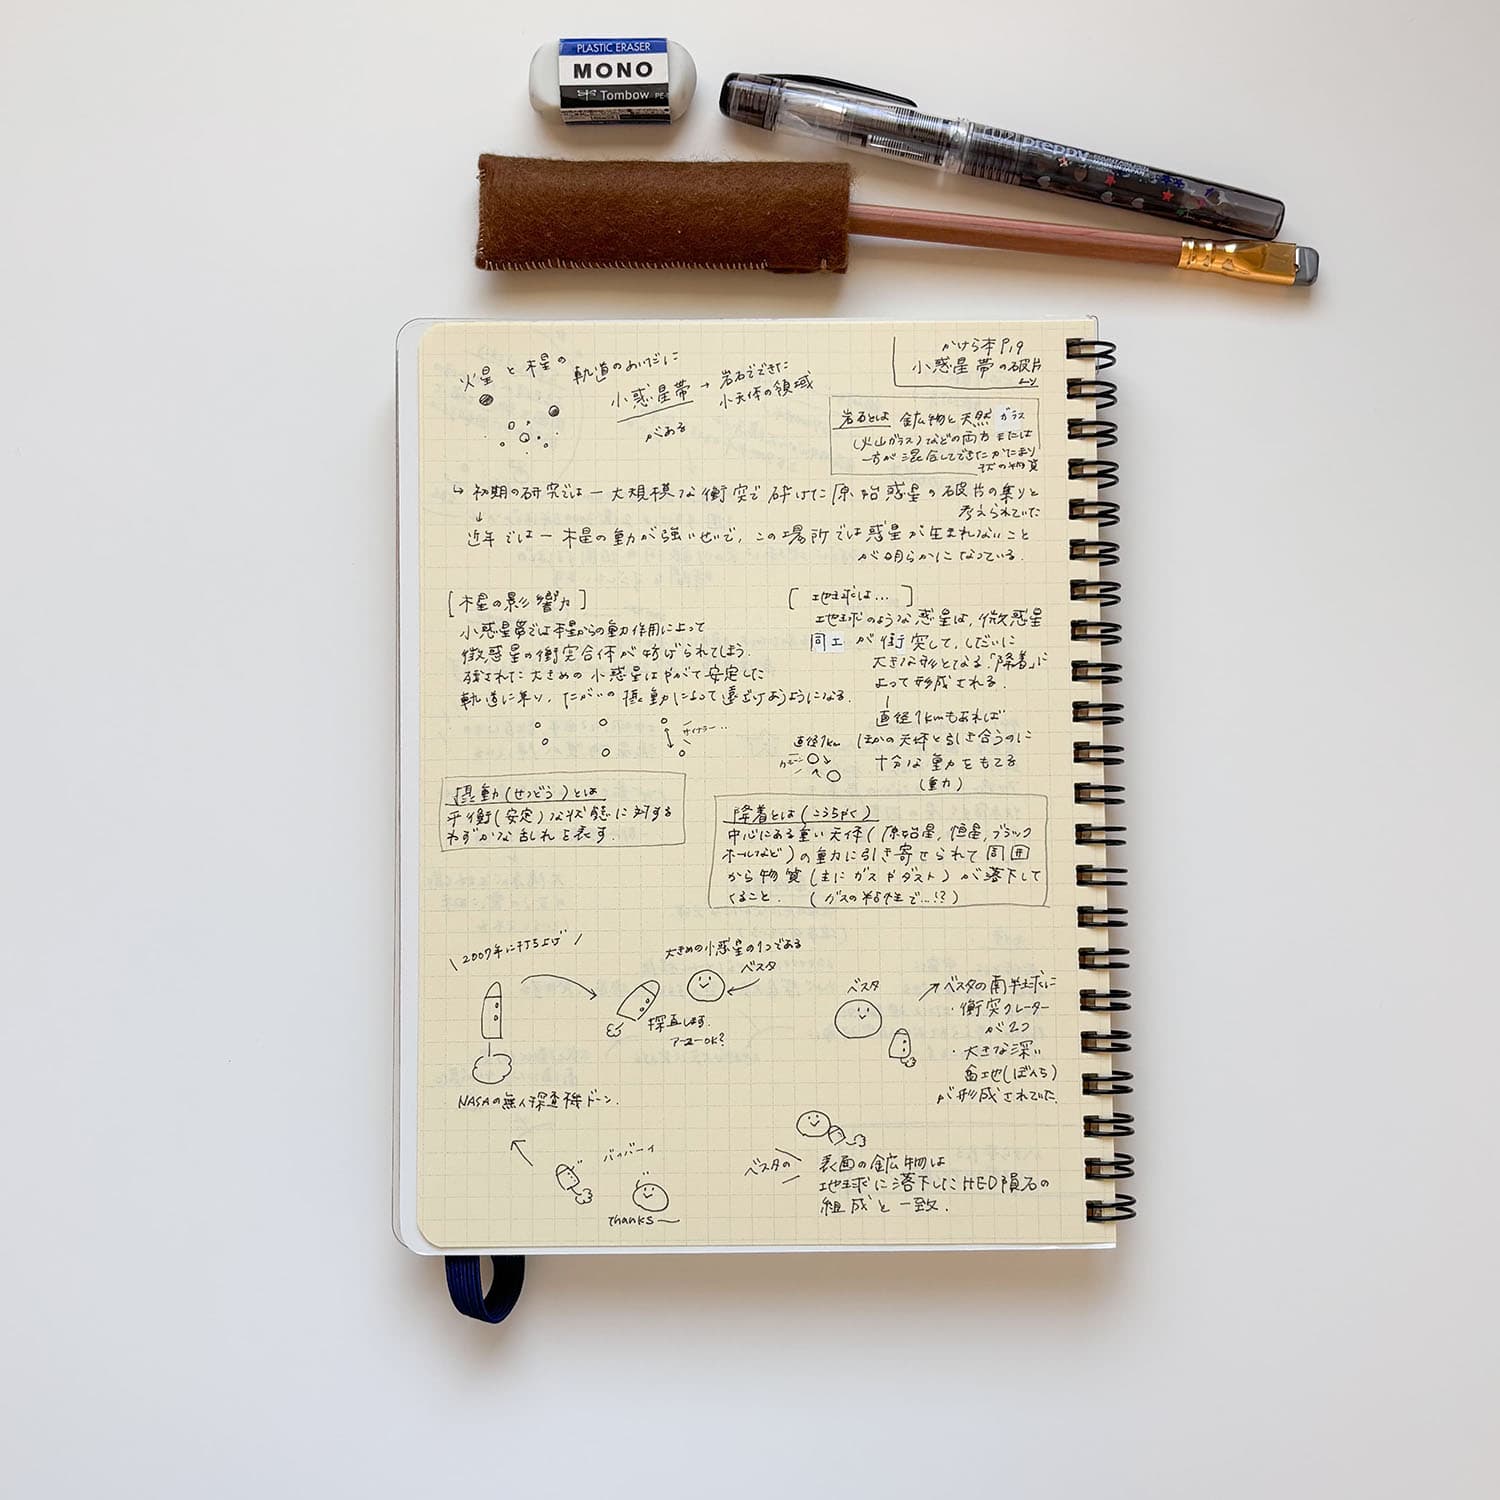 PLASTIC ERASER
MONO
Tombow PE-
preppy
かけら本 P19
小惑星帯の破片
より
火星と木星の軌道のあいだに
小惑星帯→岩石でできた
小天体の領域
がある
岩石とは 鉱物と天然ガラス
(火山ガラス)などの両方または
一方が混合してできたかたまり
状の物質
↳ 初期の研究では一大規模な衝突で砕けた原始惑星の破片の集りと
考えられていた
↓
近年では一木星の重力が強いせいで、この場所では惑星が生まれないこと
が明らかになっている.
[木星の影響力]
小惑星帯では木星からの重力作用によって
微惑星の衝突合体が妨げられてしまう.
残された大きめの小惑星はやがて安定した
軌道に乗り、たがいの摂動によって遠ざけあうようになる.
サイナラー…
[地球は…]
地球のような惑星は、微惑星
同士が衝突して、しだいに
大きな形となる「降着」に
よって形成される.
直径1kmもあれば
ほかの天体と引き合うのに
十分な重力をもてる
(重力)
直径1km
摂動(せつどう)とは
平衡(安定)な状態に対する
わずかな乱れを表す.
降着とは(こうちゃく)
中心にある重い天体(原始星,恒星,ブラック
ホールなど)の重力に引き寄せられて周囲
から物質(主にガスやダスト)が落下して
くること. (ガスの粘性で…!?)
\ 2007年に打ち上げ /
大きめの小惑星の1つである
ベスタ
探査します.
NASAの無人探査機ドーン.
ベスタ
↗ベスタの南半球に
・衝突クレーター
が2つ
・大きな深い
盆地(ぼんち)
が形成されていた.
バイバーイ
thanks〜
ベスタの
表面の鉱物は
地球に落下したHED隕石の
組成と一致.